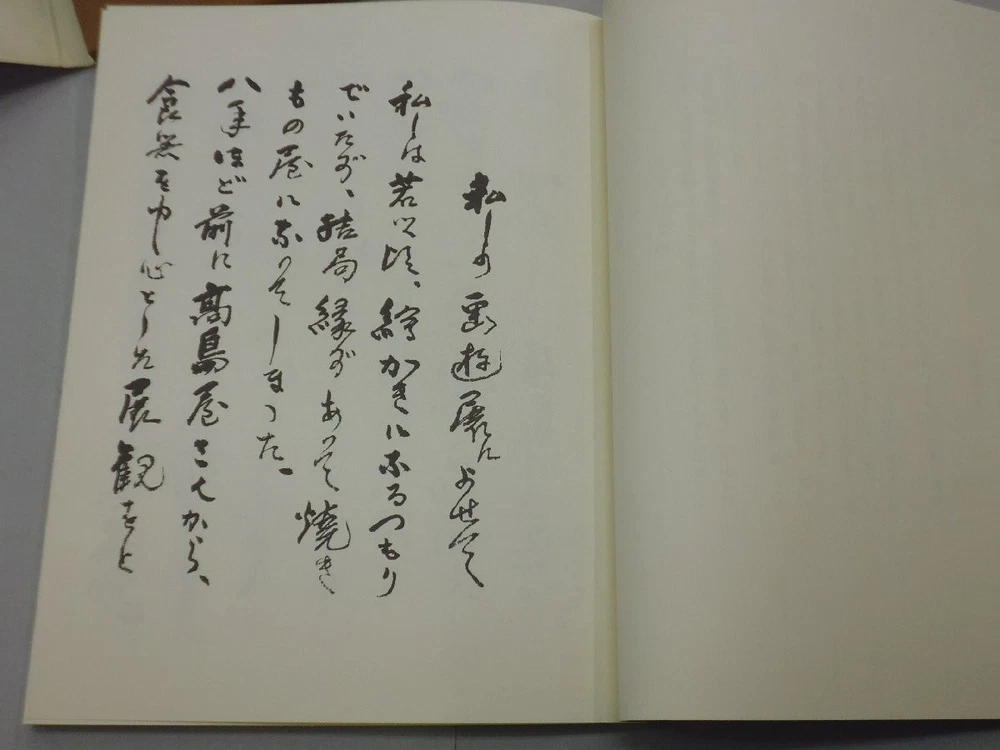 私しの画遊展によせて
私しは若い頃、繪かきになるつもり
でいたが、結局縁があって焼き
もの屋になってしまった。
八年ほど前に高島屋さんから、
食器を中心とした展観をと